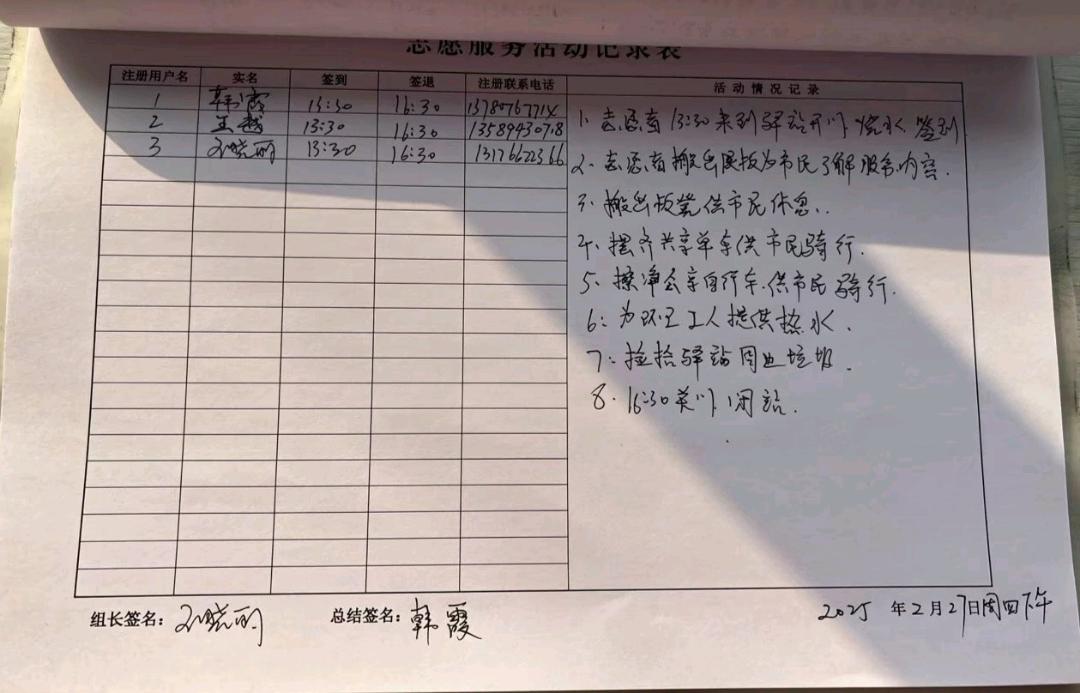 志愿服务活动记录表
注册用户名 实名 签到 签退 注册联系电话 活动情况记录
1 韩霞 13:30 16:30 13780767714
2 王 13:30 16:30 13589430718
3 刘晓丽 13:30 16:30 13176622366
1、志愿者13:30来到驿站开门 烧水 签到
2、志愿者搬出展板为市民了解服务内容.
3、搬出板凳供市民休息..
4、摆齐共享单车供市民骑行.
5、擦净公享自行车.供市民骑行.
6:为环卫工人提供热水.
7:捡拾驿站周边垃圾.
8.16:30关门闭站.
组长签名:刘晓丽 总结签名:韩霞 2025年2月27日周四下午